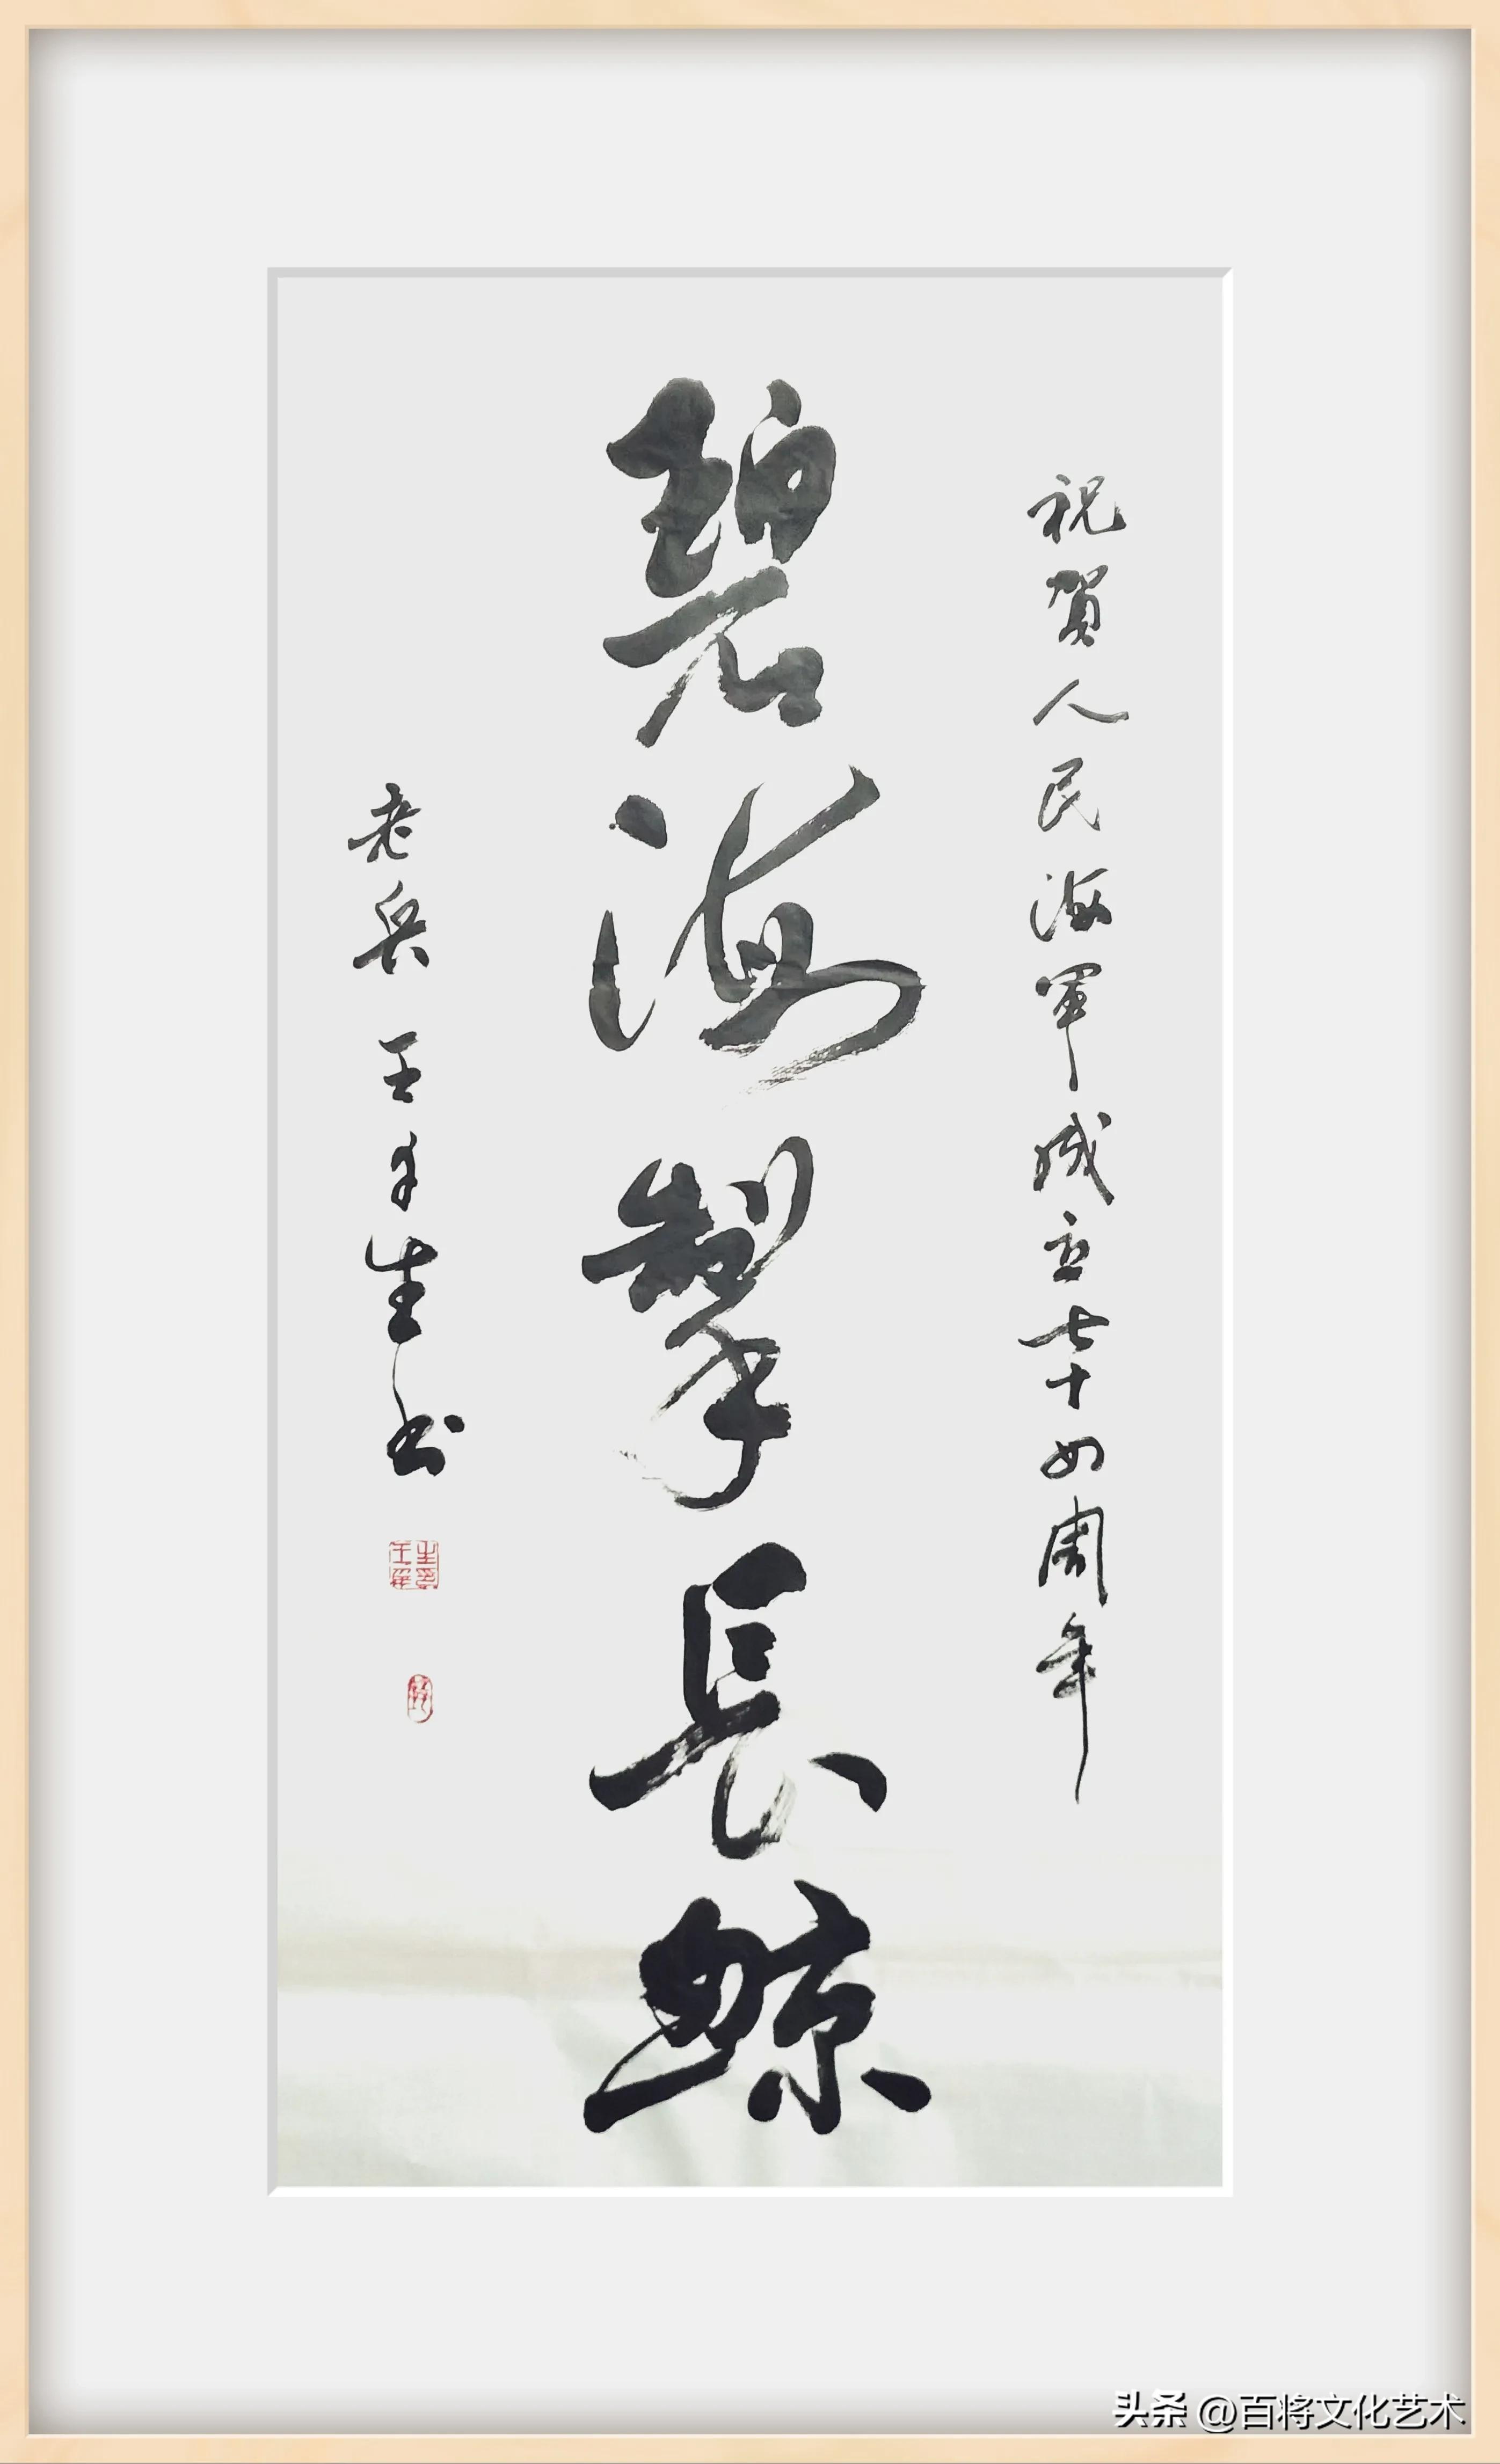 祝賀人民海軍成立七十四周年
碧海掣長鯨
老兵 王手生书
头条 @百将文化艺术